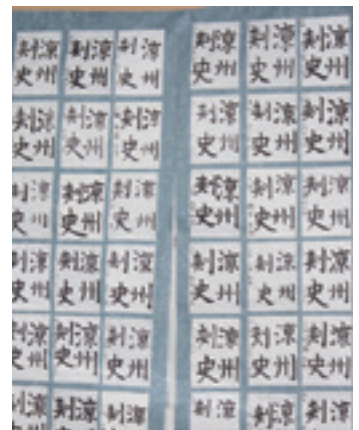 涼州
刺史
涼州
刺史
涼州
刺史
涼州
刺史
涼州
刺史
涼州
刺史
涼州
刺史
涼州
刺史
涼州
刺史
涼州
刺史
涼州
刺史
涼州
刺史
涼州
刺史
涼州
刺史
涼州
刺史
涼州
刺史
涼州
刺史
涼州
刺史
涼州
刺史
涼州
刺史
涼州
刺史
涼州
刺史
涼州
刺史
涼州
刺史
涼州
刺史
涼州
刺史
涼州
刺史
涼州
刺史
涼州
刺史
涼州
刺史
涼
刺
涼
刺
涼
刺
涼
刺
涼
刺
涼
刺